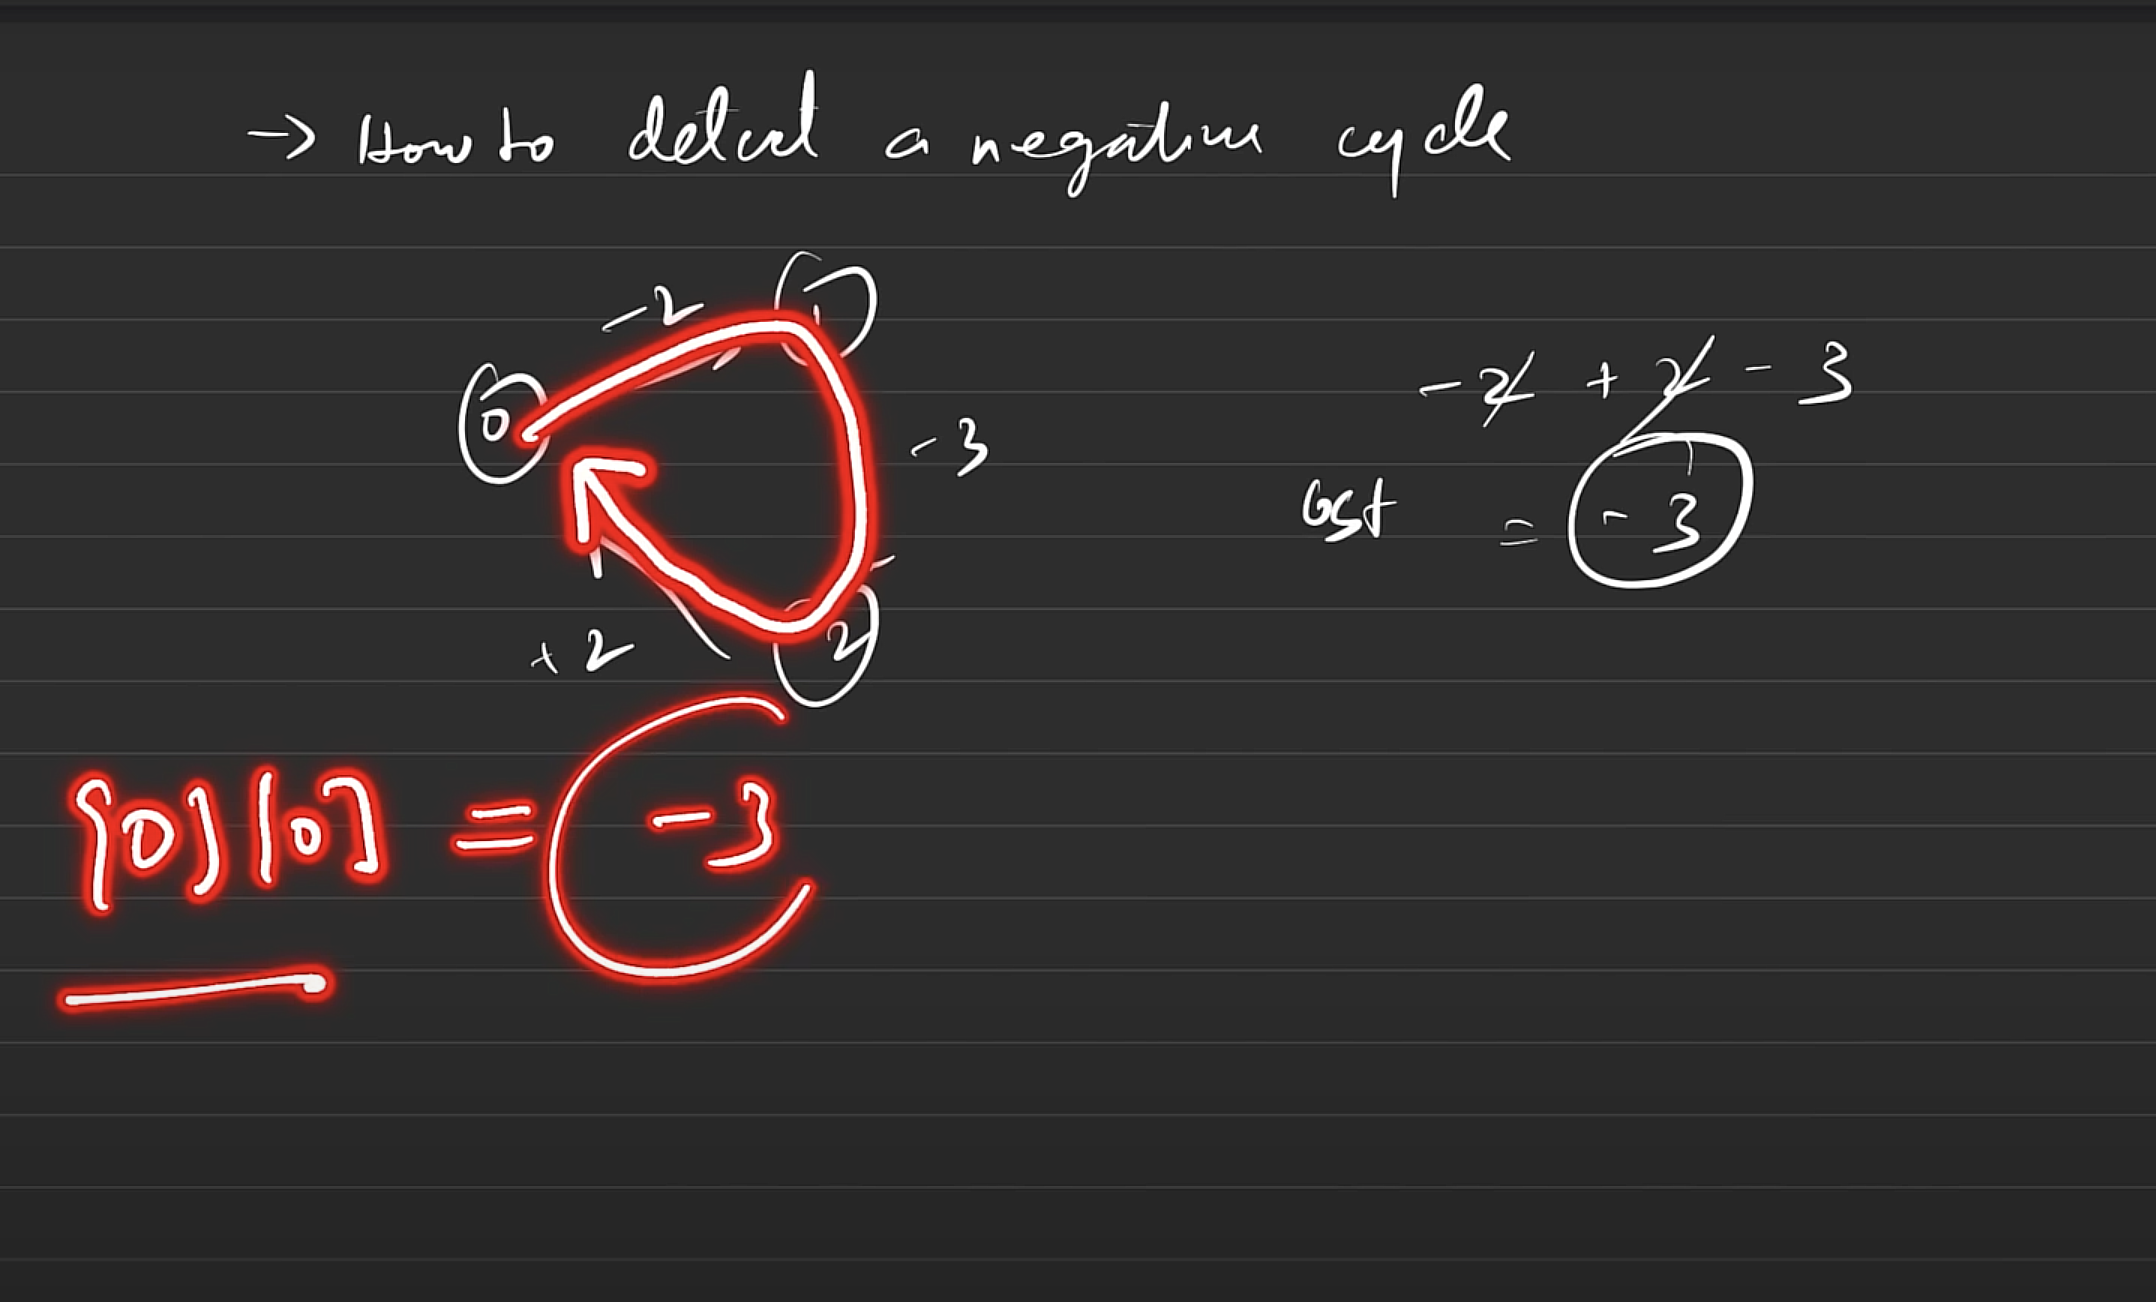 -> How to detect a negative cycle
1
-2
0
-2 + 2 - 3
-3
Cost = -3
2
+2
[0][0] = -3